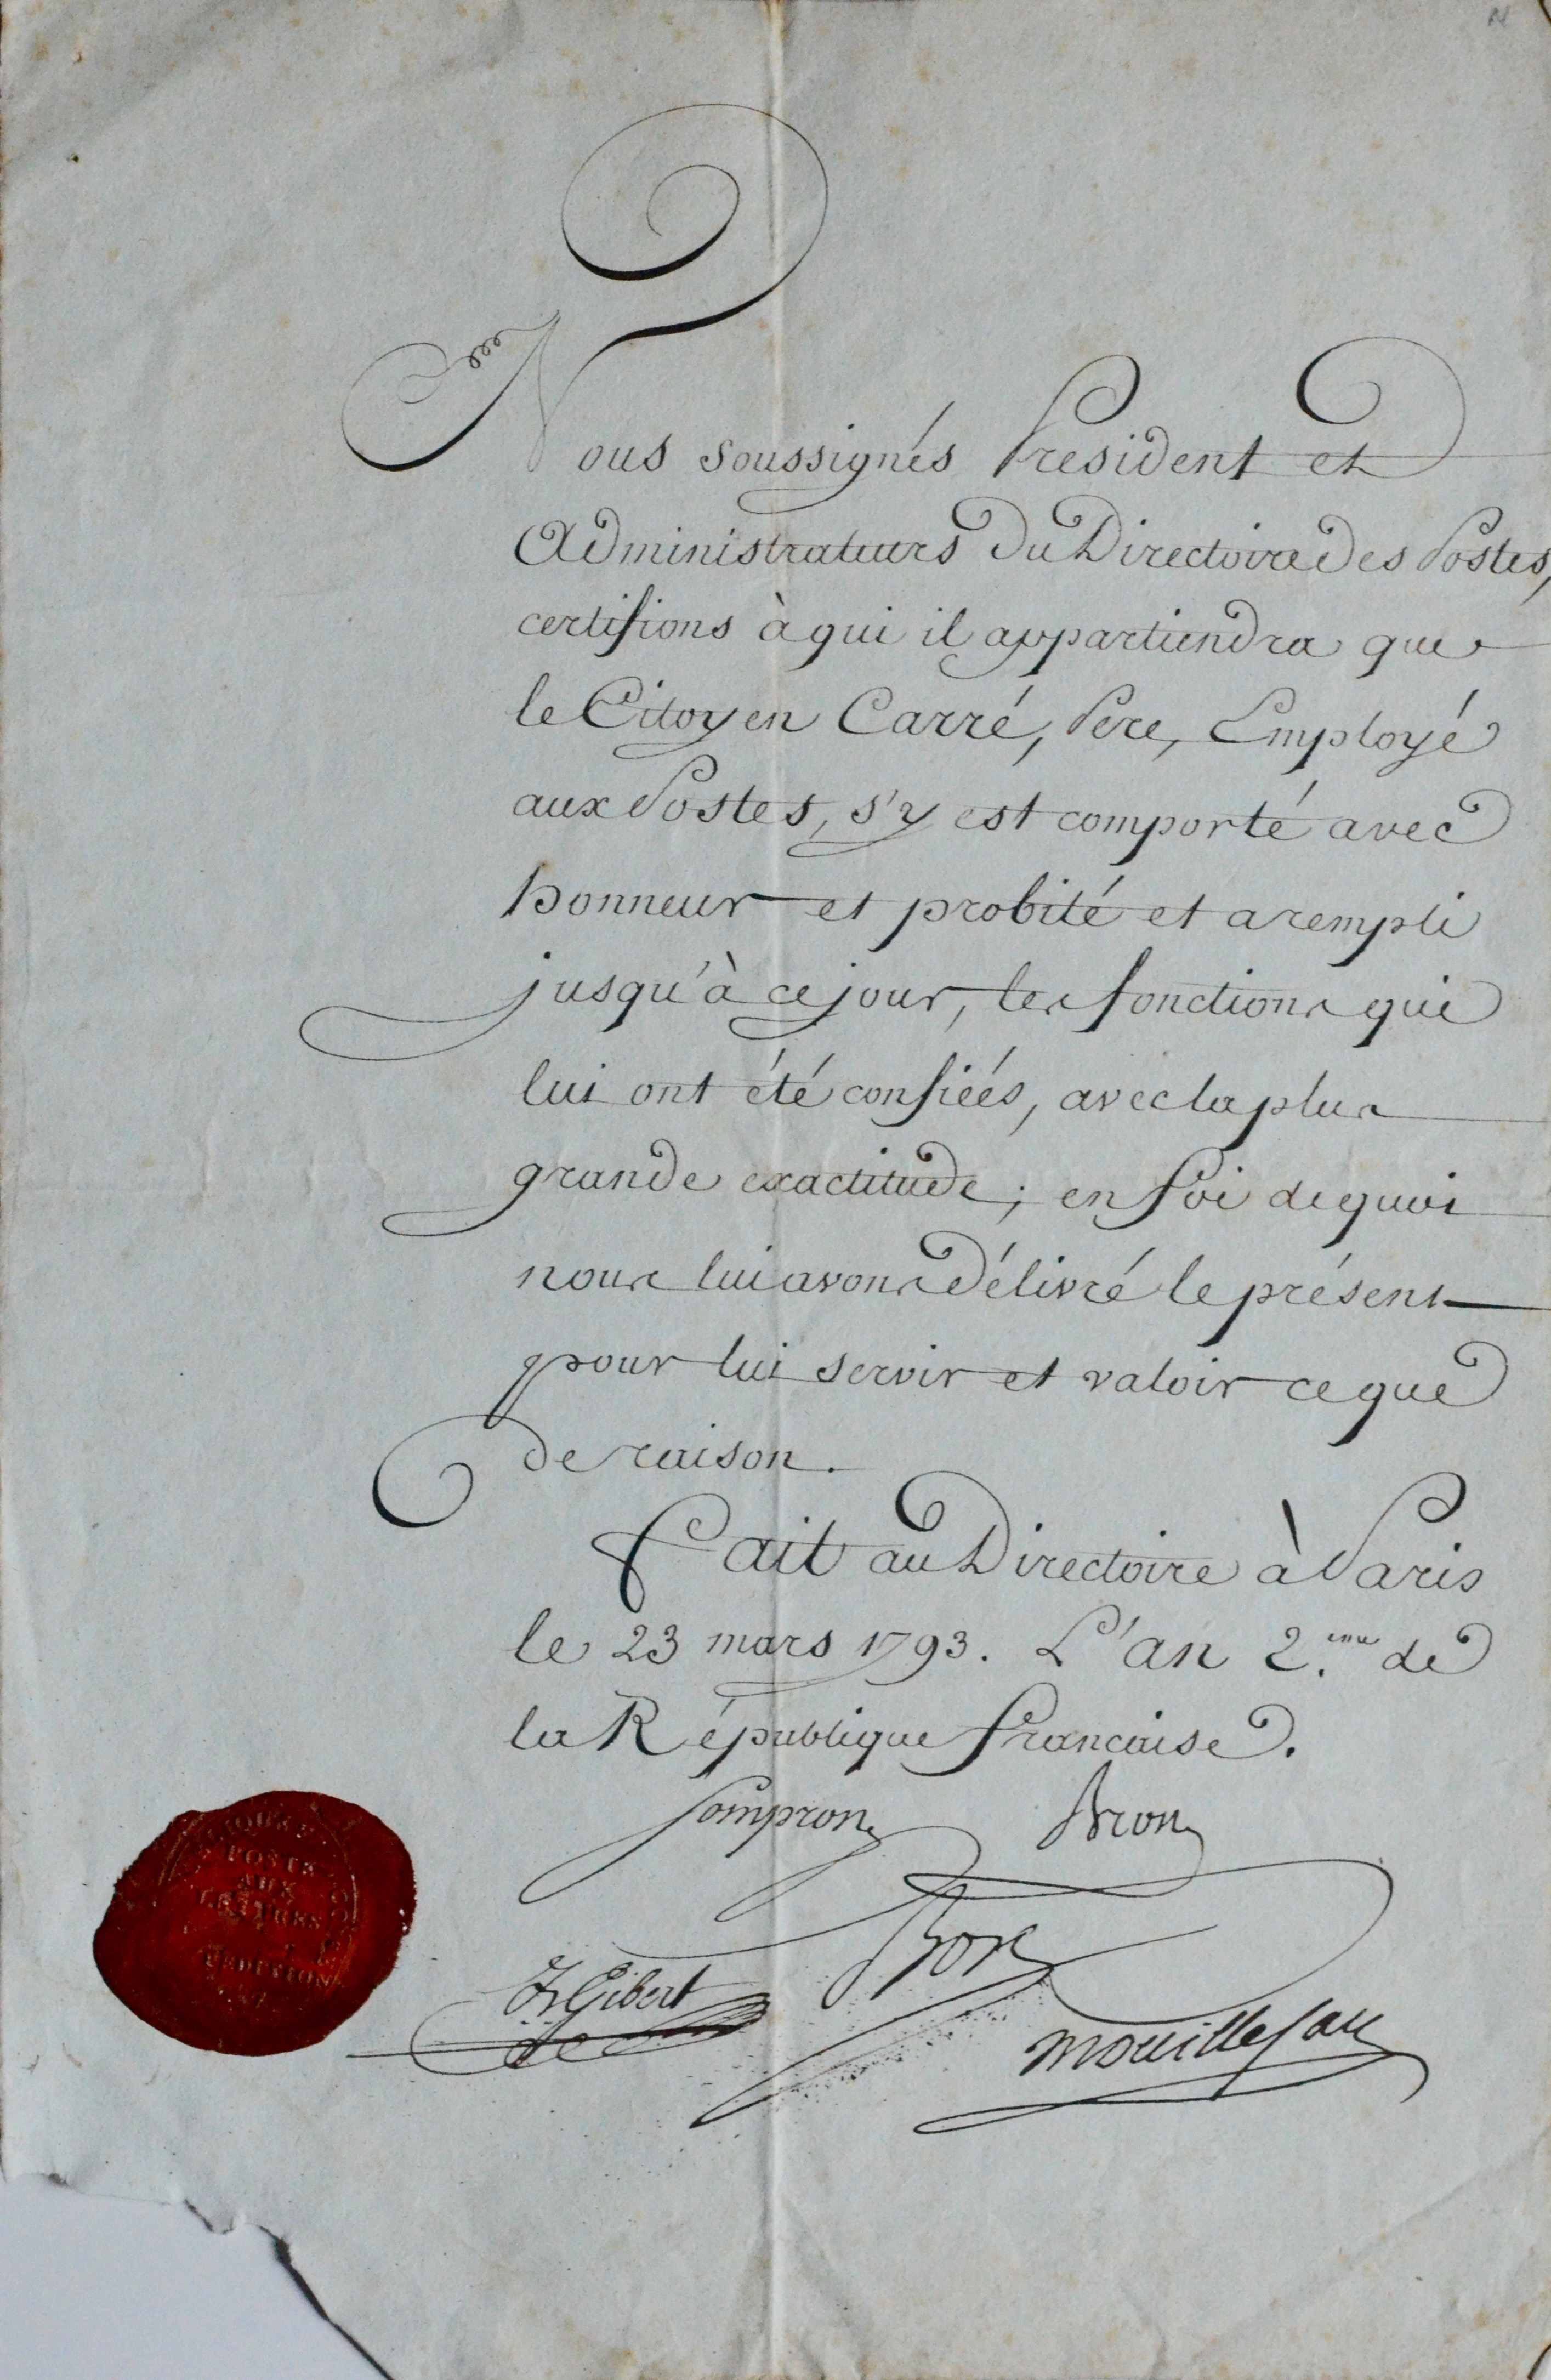 Nous soussignés President et
Administrateurs du Directoire des Postes,
certifions à qui il appartiendra que
le Citoyen Carré, Pere, Employé
aux Postes, s'y est comporté avec
honneur et probité et a rempli
jusqu'à ce jour, les fonctions qui
lui ont été confiéés, avec la plus
grande exactitude; en foi de quoi
nous lui avons délivré le présent
pour lui servir et valoir ce que
de raison.
Fait au Directoire à Paris
le 23 mars 1793. L'an 2.eme de
la République francaise.
Sompron Bron
Gibert
Mouillesau
POSTE
AUX
LETTRES